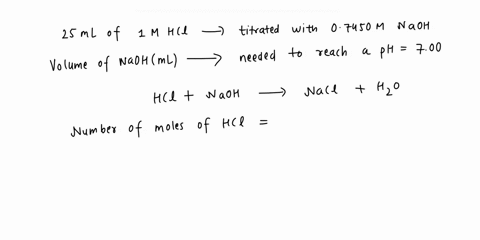 25 mL of 1 M HCl ⟶ titrated with 0.7450 M NaOH
Volume of NaOH(mL) ⟶ needed to reach a pH = 7.00
HCl + NaOH ⟶ NaCl + H₂O
Number of moles of HCl =